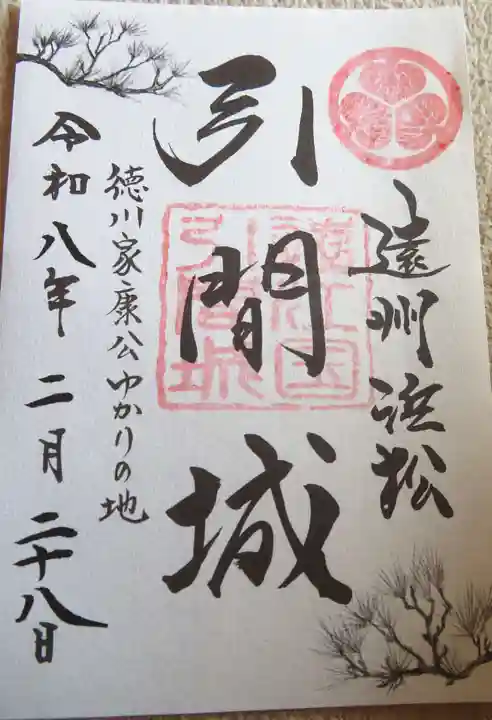 遠州浜松
引間城
遠江国
引間城
徳川家康公ゆかりの地
令和八年二月二十八日